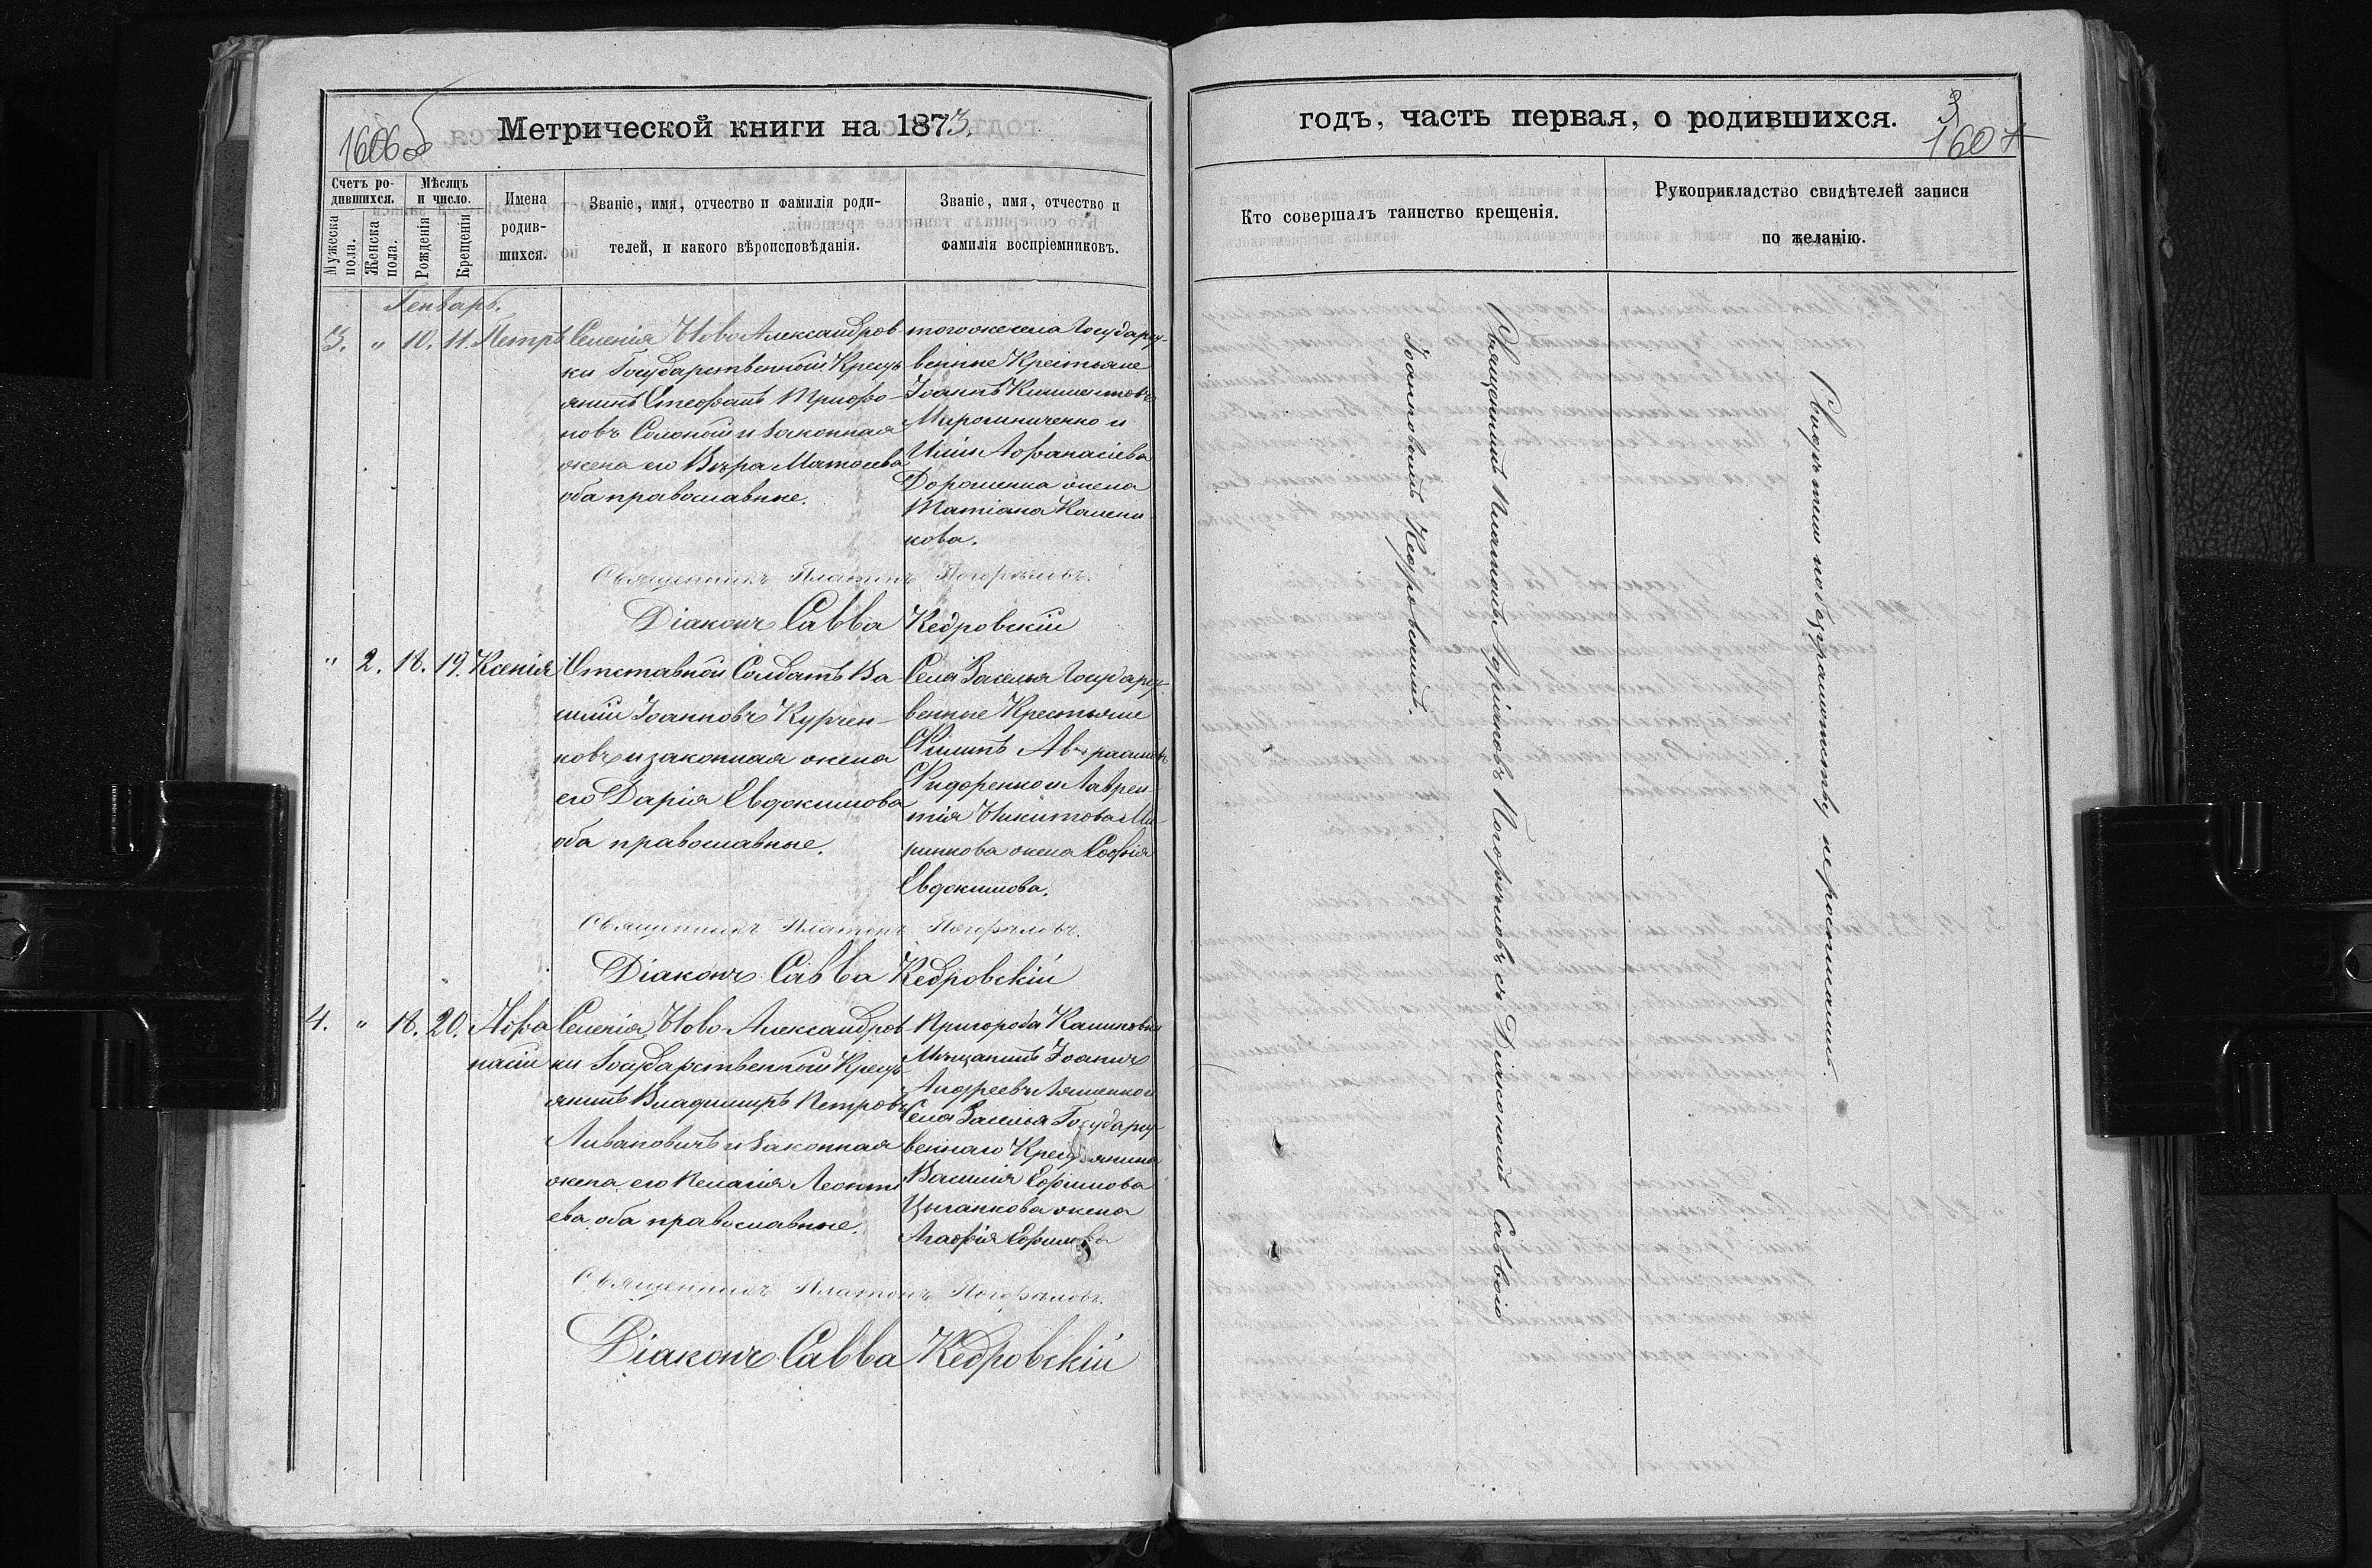 1606 об
Метрической книги на 1873.
Счетъ родившихся.
Мужеска пола.
Женска пола.
Мѣсяцъ и число.
Рожденія
Крещенія
Имена родившихся.
Званіе, имя, отчество и фамилія роди-
телей, и какого вѣроисповѣданія.
Званіе, имя, отчество и
фамилія воспріемниковъ.
Генварь.
3. " 10. 11. Петръ
Селенія Ново Александров-
ки Государственной Крестъ
янинъ Стефанъ Трифо-
новъ Солоной и законная
жена его Вѣра Матѳеева
оба православные.
того же села Государст-
венные Крестьяне
Іоаннъ Климентовъ
Мирошниченко и
Афанасіева
Дорошенка жена
Татіана Калени-
кова.
Священникъ Платонъ Погорѣловъ.
Діаконъ Савва Кедровскій
" 2. 18. 19. Ксенія
Отставной Солдатъ Ва-
силій Іоанновъ Курчен-
ковъ и законная жена
его Дарія Евдокимова
оба православные.
Села Заселья Государст-
венные Крестьяне
Филипъ Авраамовъ
Сидоренко и Лаврен-
тія Никитова Ма-
ринкова жена Софія
Евдокимова.
Священникъ Платонъ Погорѣловъ.
Діаконъ Савва Кедровскій
4. " 18. 20. Афа
насій
Селенія Ново Александров-
ки Государственной Крестъ-
янинъ Владимиръ Петровъ
Ливановичъ и законная
жена его Пелагія Леонти
ева, оба православные.
Пригорода Калиновки
Мѣщанинъ Іоаннъ
Андреевъ Ляшенко и
Села Заселья Государст-
веннаго Крестьянина
Василія Ефимова
Цыганкова жена
Агафія Ефимова
Священникъ Платонъ Погорѣловъ.
Діаконъ Савва Кедровскій
годъ, часть первая, о родившихся.
3
1607
Кто совершалъ таинство крещенія.
Рукоприкладство свидѣтелей записи
по желанію.
Священникъ Платонъ Адріановъ Погорѣловъ съ Діакономъ Саввою
Іоанновымъ Кедровскимъ.
Свидѣтели по безграмотству не росписались.